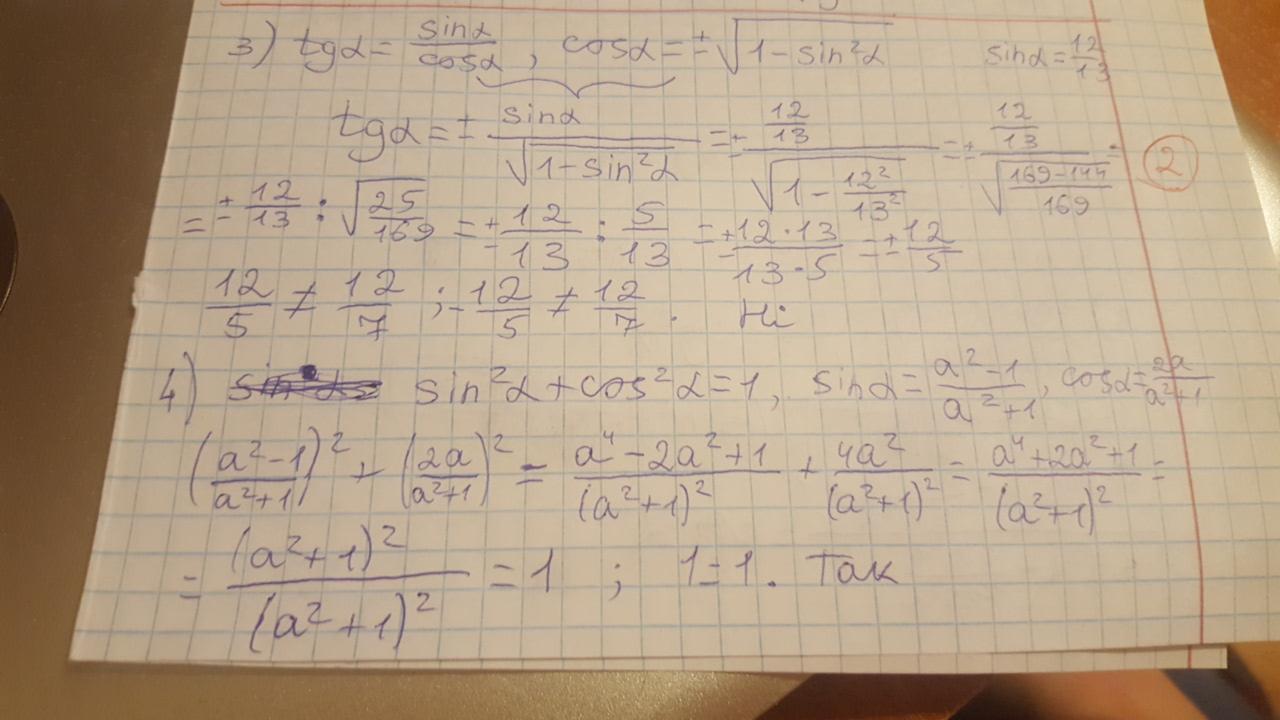 3) tgα = sinα/cosα , cosα = ±√(1-sin²α) sinα = 12/13
tgα = ± sinα/√(1-sin²α) = ± (12/13)/√(1 - 12²/13²) = ± (12/13)/√((169-144)/169) =
②
= ± 12/13 : √(25/169) = ± 12/13 : 5/13 = ± (12·13)/(13·5) = ± 12/5
12/5 ≠ 12/7 ; -12/5 ≠ 12/7 . Ні
4) sin²α + cos²α = 1, sinα = (a²-1)/(a²+1), cosα = 2a/(a²+1)
((a²-1)/(a²+1))² + (2a/(a²+1))² = (a⁴-2a²+1)/(a²+1)² + 4a²/(a²+1)² = (a⁴+2a²+1)/(a²+1)² =
= (a²+1)²/(a²+1)² = 1 ; 1=1. Так